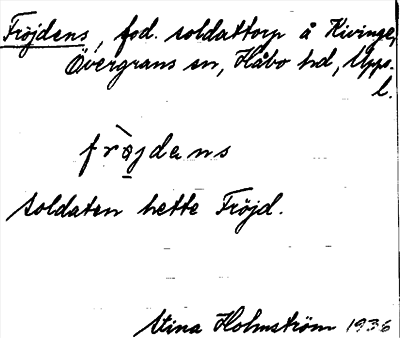 Fröjdens, fod. soldattorp å Kivinge,
Övergrans sn, Håbo hd, Upps.
l.
fröjdens
Soldaten hette Fröjd.
Stina Holmström 1936